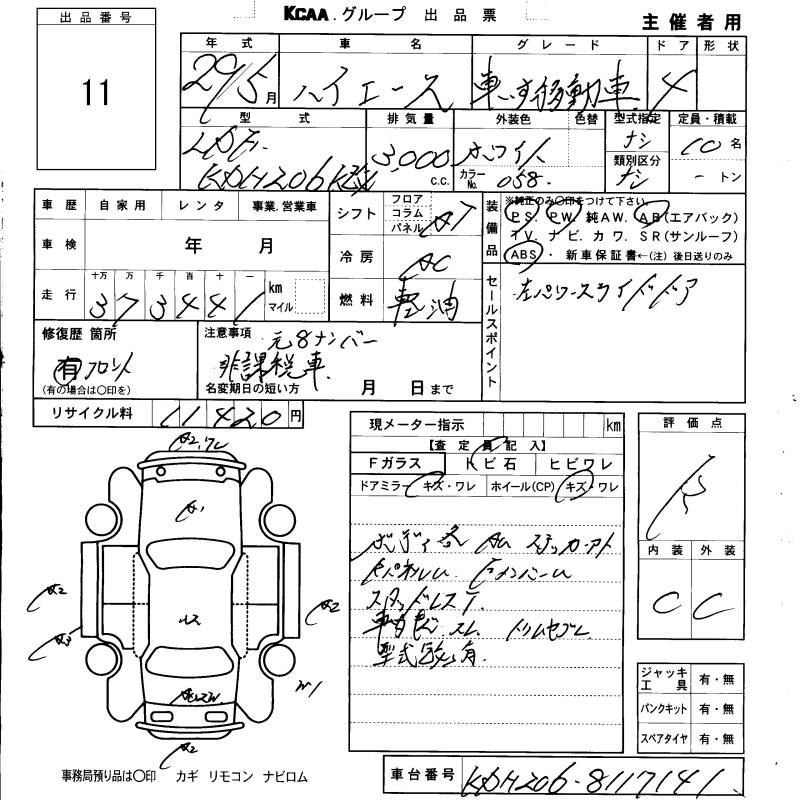 KCAA.グループ 出品票
主催者用
出品番号
11
年式 車名 グレード ドア 形状
29/5月 ハイエース 車いす移動車 4
型式 排気量 外装色 色替 型式指定 定員・積載
LDF- 3,000 ホワイト ナシ 10名
KDH206K改 c.c. カラーNo. 058 類別区分 ナシ -トン
車歴 自家用 レンタ 事業.営業車
車検 年 月
走行 十万 万 千 百 十 一
373441 km マイル
シフト フロア コラム パネル AT
冷房 AC
燃料 軽油
装備品 ※純正のみ○印をつけて下さい。
PS. PW. 純AW. AB(エアバック)
TV. ナビ. カワ. SR(サンルーフ)
ABS・新車保証書←(注)後日送りのみ
セールスポイント
左パワースライドドア
修復歴 箇所
有 フロント
(有の場合は○印を)
注意事項 元8ナンバー
非課税車
名変期日の短い方 月 日まで
リサイクル料 11420円
現メーター指示 km
【査定員記入】
Fガラス トビ石 ヒビワレ
ドアミラー キズ・ワレ ホイール(CP) キズ・ワレ
スタッドレスT
評価点
R
内装 外装
C C
A2,ワレ
A1
A2
A3
A2
W1
A2
ジャッキ工具 有・無
パンクキット 有・無
スペアタイヤ 有・無
事務局預り品は○印 カギ リモコン ナビロム
車台番号 KDH206-8117141